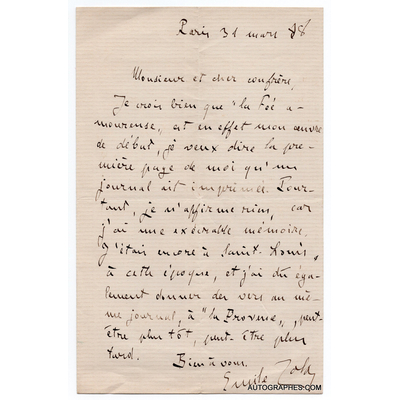 Paris 31 mars 88
Monsieur et cher confrère,
Je crois bien que "la Fée a-
moureuse" est en effet mon œuvre
de début, je veux dire la pre-
mière page de moi qu'un
journal ait imprimée. Pour-
tant, je n'affirme rien, car
j'ai une exécrable mémoire.
J'étais encore à Saint-Louis,
à cette époque, et j'ai dû éga-
lement donner des vers au mê-
me journal, à "la Provence", peut-
être plus tôt, peut-être plus
tard.
Bien à vous.
Emile Zola
AUTOGRAPHES.COM